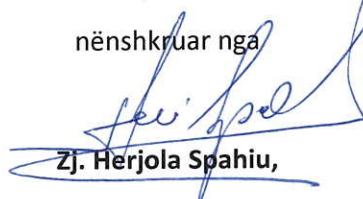 nënshkruar nga
Zj. Herjola Spahiu,